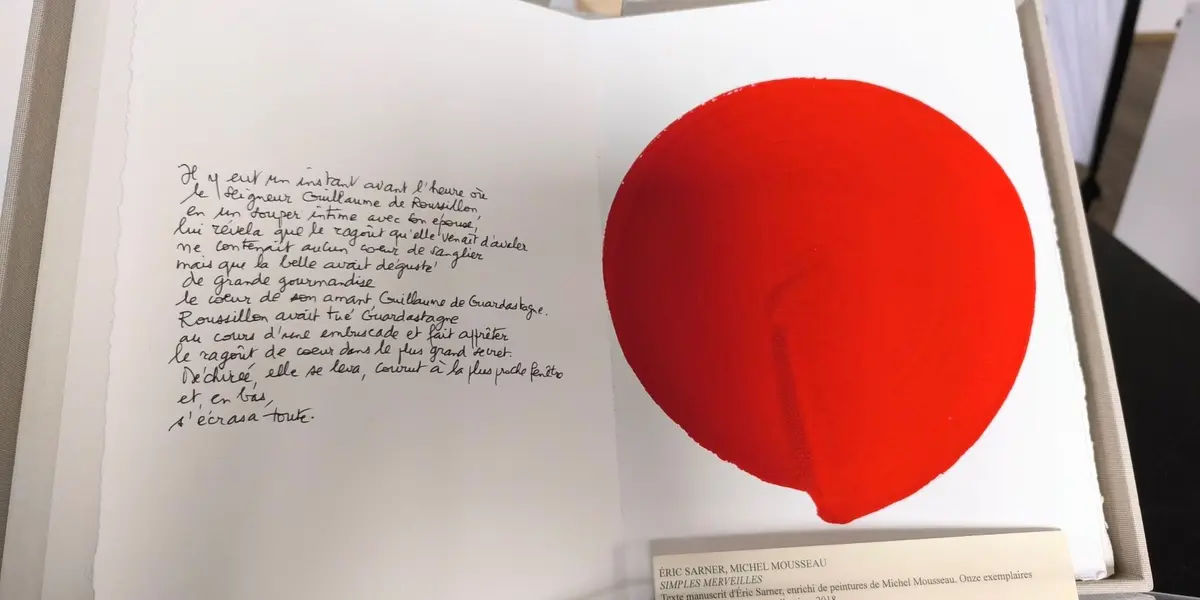 Il y eut un instant avant l'heure où
le Seigneur Guillaume de Roussillon,
en un souper intime avec son épouse,
lui révela que le ragoût qu'elle venait d'avaler
ne contenait aucun cœur de sanglier
mais que la belle avait dégusté
de grande gourmandise
le cœur de son amant, Guillaume de Guardastagne.
Roussillon avait tué Guardastagne
au cours d'une embuscade et fait apprêter
le ragoût de cœur dans le plus grand secret.
Déchirée, elle se leva, courut à la plus proche fenêtre
et, en bas,
s'écrasa toute.
ÉRIC SARNER, MICHEL MOUSSEAU
SIMPLES MERVEILLES
Texte manuscrit d'Éric Sarner, enrichi de peintures de Michel Mousseau. Onze exemplaires
2018